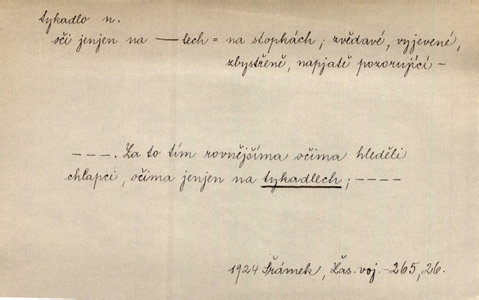 tykadlo n.
oči jenjen na —lech = na stopkách; zvědavé, vyjevené,
zbystřené, napjatě pozorující –
– – – . Za to tím rovnějšíma očima hleděli
chlapci, očima jenjen na tykadlech; – – – –
1924 Šrámek, Lás. voj. – 265, 26.